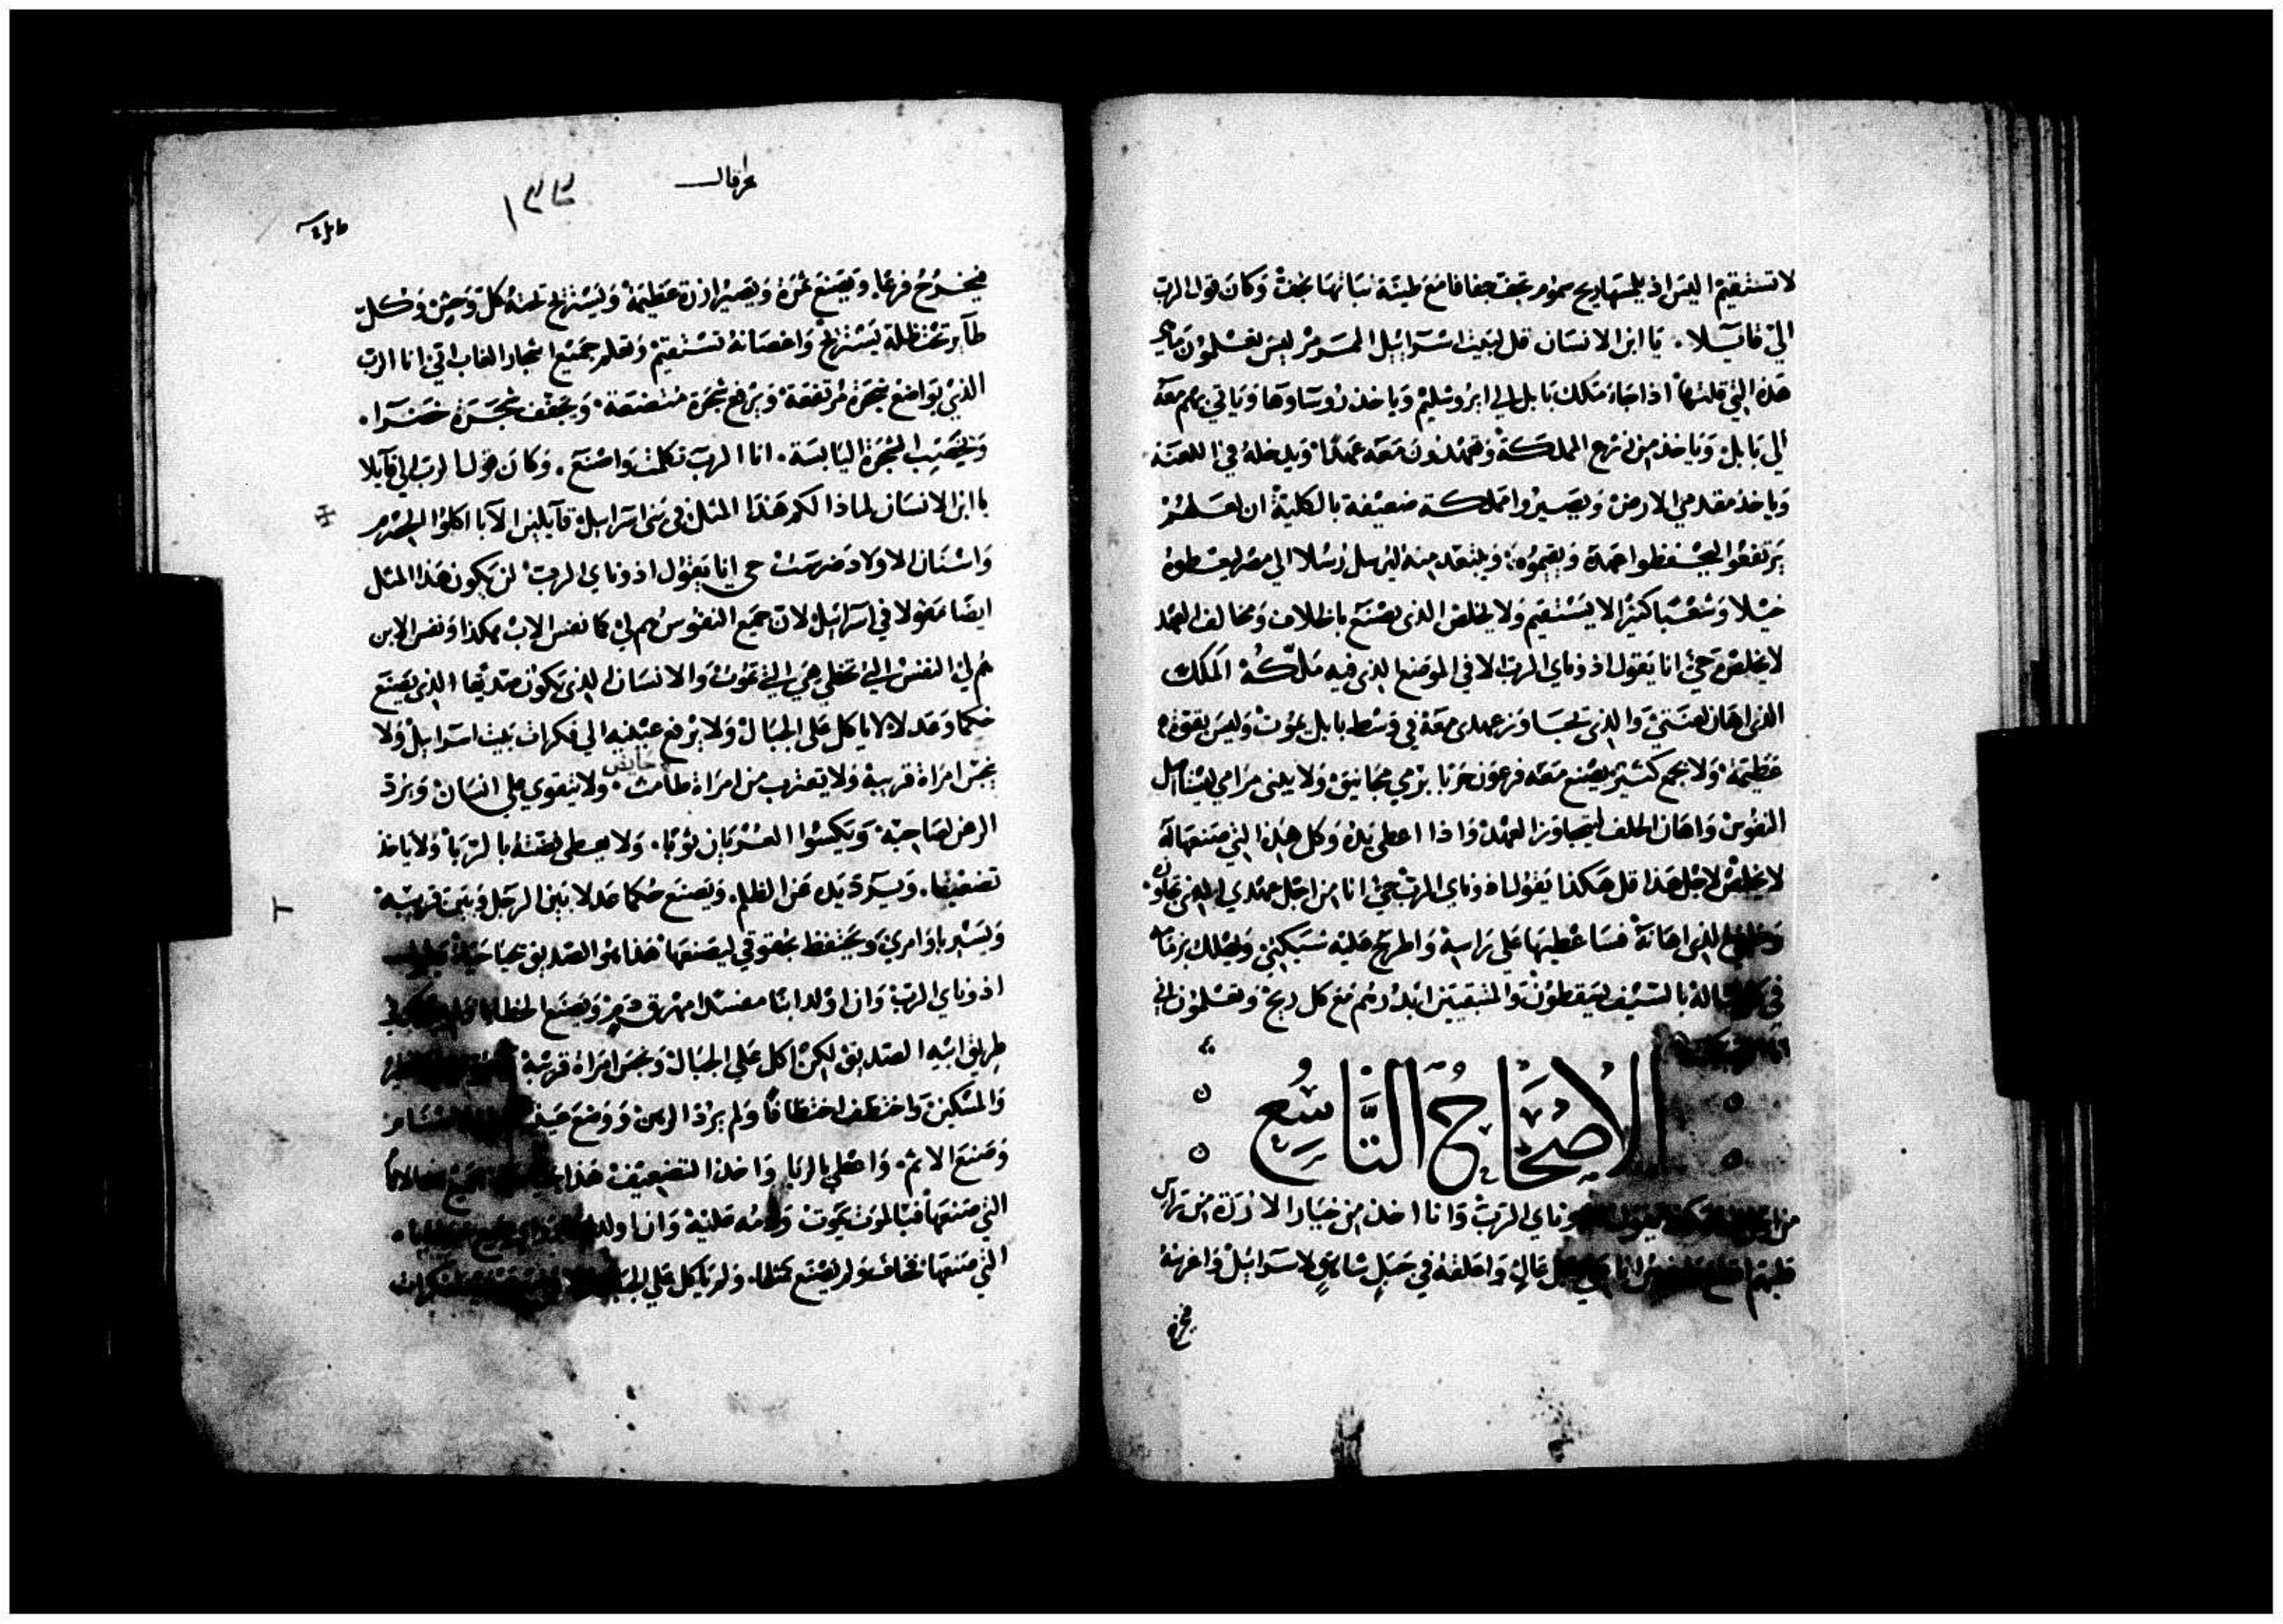 لا تستقيم اليس اذ يلمسها ريح سموم تجف جفافا مع طيسة نباتها تجف وكان قول الرب
الي قايلا . يا ابن الانسان قل لبيت اسراييل المسرمر ليس تعلمون ما هي
هذه التي قلتها اذا جاء ملك بابل الي ايروشليم وياخذ روساوها وياتي بهم معه
الي بابل وياخذ من زرع المملكة ويمهدون معه عهدا ويدخله في اللعنة
وياخذ مقدمي الارض ويصيروا مملكة ضعيفة بالكلية ان لعلهم
يرتفعوا ليحتفظوا عهده ويقيموه . ويبتعد منه ليرسل رسلا الي مصر ليعطوه
خيلا وشعبا كثيرا لا يستقيم ولا يخلص الذي يصنع باخلاف ومخالف العهد
لا يخلص حي انا يقول اذوناي الرب الا في الموضع الذي فيه ملكه الملك
الذي اهان لعنتي والذي تجاوز عهدي معه في وسط بابل يموت وليس بقوة
عظيمة ولا بجمع كثير يصنع معه فرعون حربا برمي مجانيق ولا يبني مرامي ليستاصل
النفوس واهان الحلف ليتجاوز العهد واذا اعطي يده وكل هذه التي صنعها له
لا يخلص لاجل هذا قل هكذا يقول اذوناي الرب حي انا من اجل عهدي الذي تجاوزه
الذي اهانة فساعطيها علي راسه واطرح عليه شبكتي
بالسيف يسقطون والمتبقيين ابددهم مع كل ريح وتعلمون اني
الاصحاح التاسع
اذوناي الرب وانا اخذ من خيار الارزة من راس
عالي واعلقه في جبل شاهق لاسراييل واغرسه
فيخرج
حزقيال
١٣٣
فيخرج فرعا ويصنع ثمرة ويصير ارزة عظيمة ويستريح تحته كل وحش وكل
طاير تحت ظله يستريح واغصانه تستقيم وتعلم جميع اشجار الغاب اني انا الرب
الذي يواضع شجرة مرتفعة ويرفع شجرة متضعة ويجفف شجرة خضرا .
ويخصب الشجرة اليابسة . انا الرب تكلمت واصنع . وكان قول الرب الي قايلا
يا ابن الانسان لماذا لكم هذا المثل في بني اسراييل قايلين الابا اكلوا الحصرم
واسنان الاولاد ضرست حي انا يقول اذوناي الرب لن يكون هذا المثل
ايضا مقولا في اسراييل لان جميع النفوس هم لي كما نفس الاب هكذا ونفس الابن
هم لي النفس التي تخطي هي التي تموت والانسان الذي يكون صديقا الذي يصنع
حكما وعدلا لا ياكل علي الجبال ولا يرفع عينيه الي فكرات بيت اسراييل ولا
حايض
ينجس امراة قريبه ولا يقترب من امراة طامث . ولا يتقوي علي انسان ويرد
الرهن لصاحبه ويكسوا العريان ثوبا . ولا يعطي فضته بالربا ولا ياخذ
تضعيفا . ويرد يده عن الظلم . ويصنع حكما عدلا بين الرجل وبين قريبه
ويسير باوامري ويحتفظ بحقوقي ليصنعها هذا هو الصديق حياة يحيا يقول
اذوناي الرب وان اولد ابنا مفسدا مهرق دم ويصنع الخطايا
طريق ابيه الصديق لكن اكل علي الجبال ونجس امراة قريبه
والمسكين واختطف اختطافا ولم يرد الرهن ووضع عينيه
وصنع الاثم . واعطي بالربا واخذ التضعيف هذا
التي صنعها فبالموت يموت ودمه عليه وان اولد
التي صنعها فخاف ولم يصنع مثلها . ولم ياكل علي الجبال